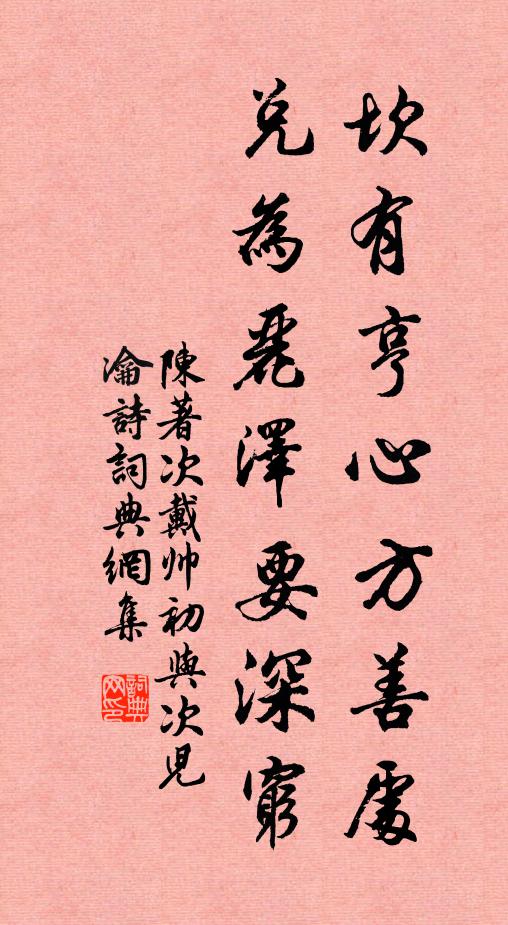 坎有亨心方善處
兌為麗澤要深窮
陳著次戴帅初與次兒
瀹詩詞典網集
詞典网印